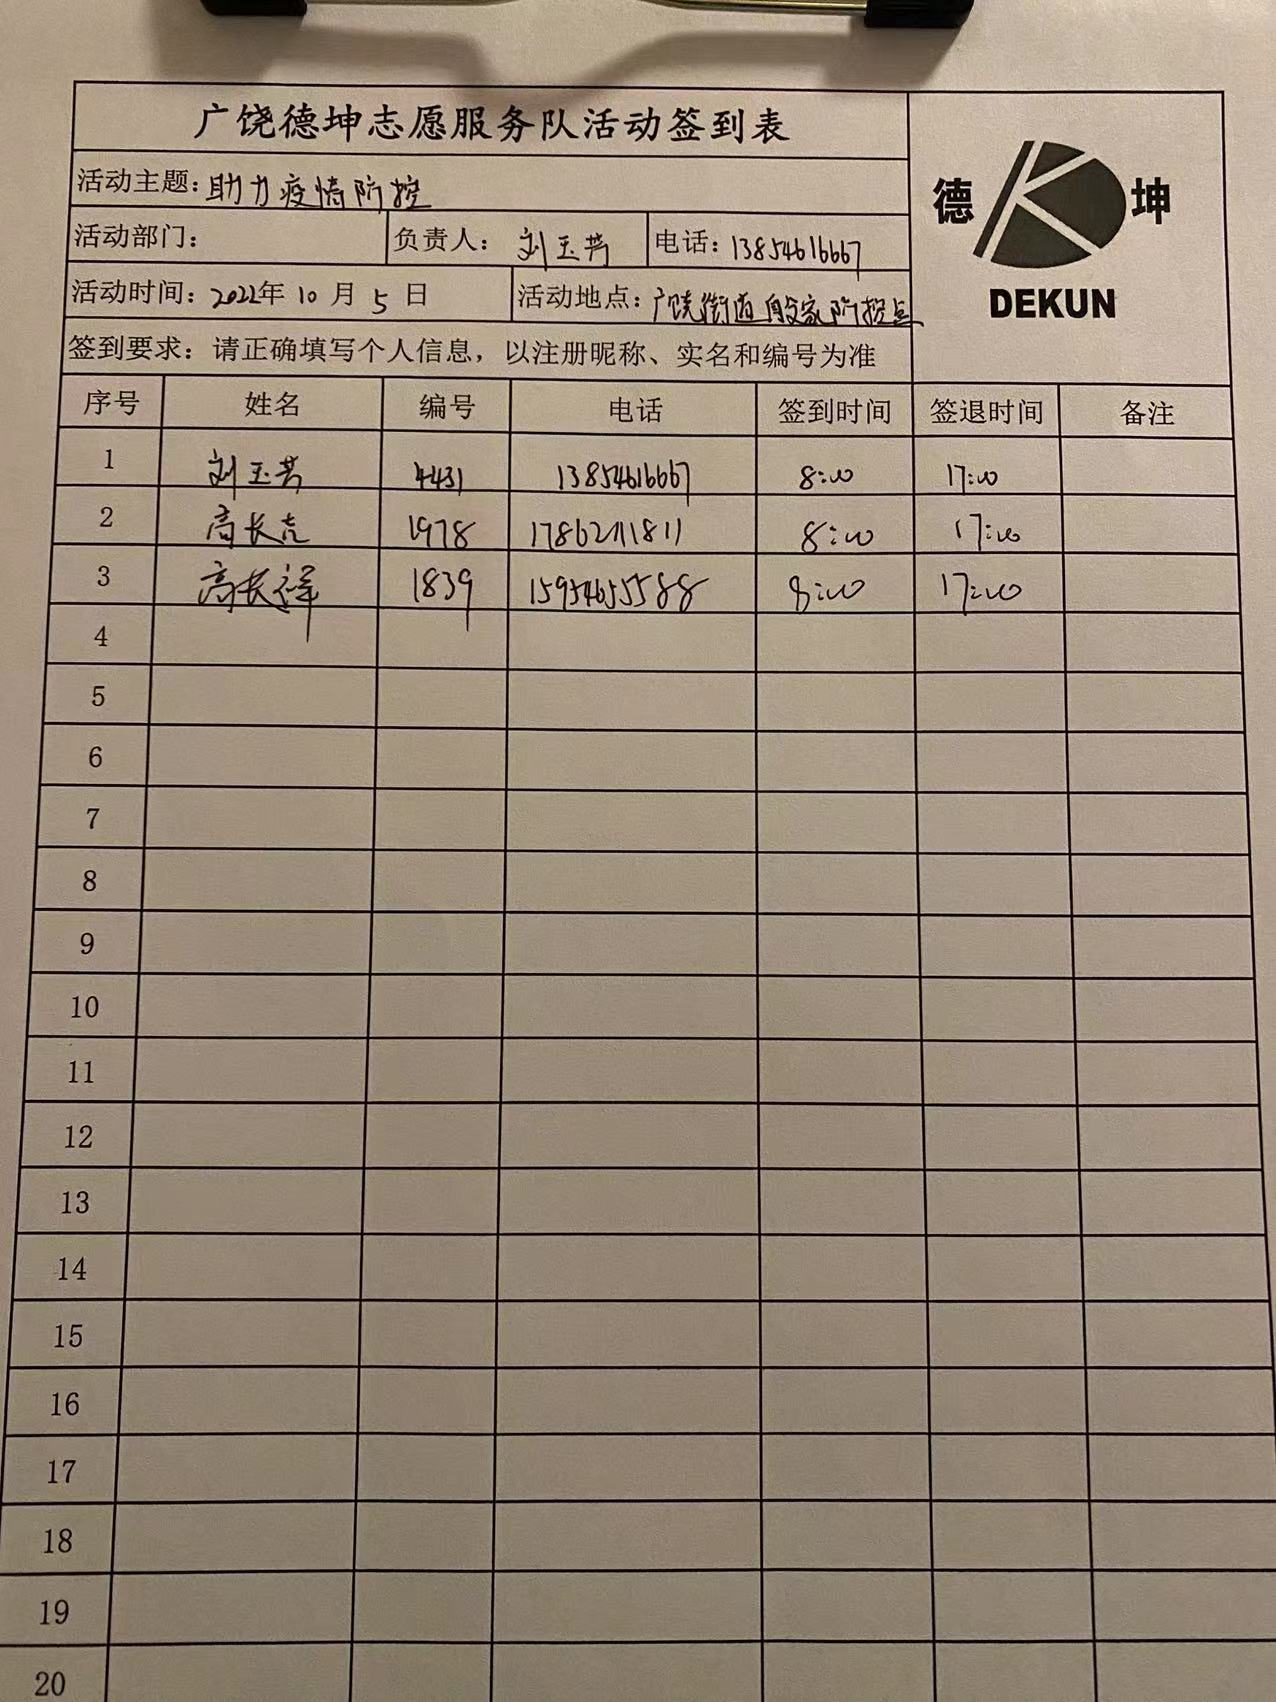 广饶德坤志愿服务队活动签到表
德 坤
DEKUN
活动主题：助力疫情防控
活动部门： 负责人： 刘玉芳 电话：13854616667
活动时间：2022年 10 月 5 日 活动地点：广饶街道殷家防控点
签到要求：请正确填写个人信息，以注册昵称、实名和编号为准
序号 姓名 编号 电话 签到时间 签退时间 备注
1 刘玉芳 4431 13854616667 8:00 17:00
2 高长吉 1978 17862111811 8:00 17:00
3 高长祥 1839 15954655588 8:00 17:00
4
5
6
7
8
9
10
11
12
13
14
15
16
17
18
19
20